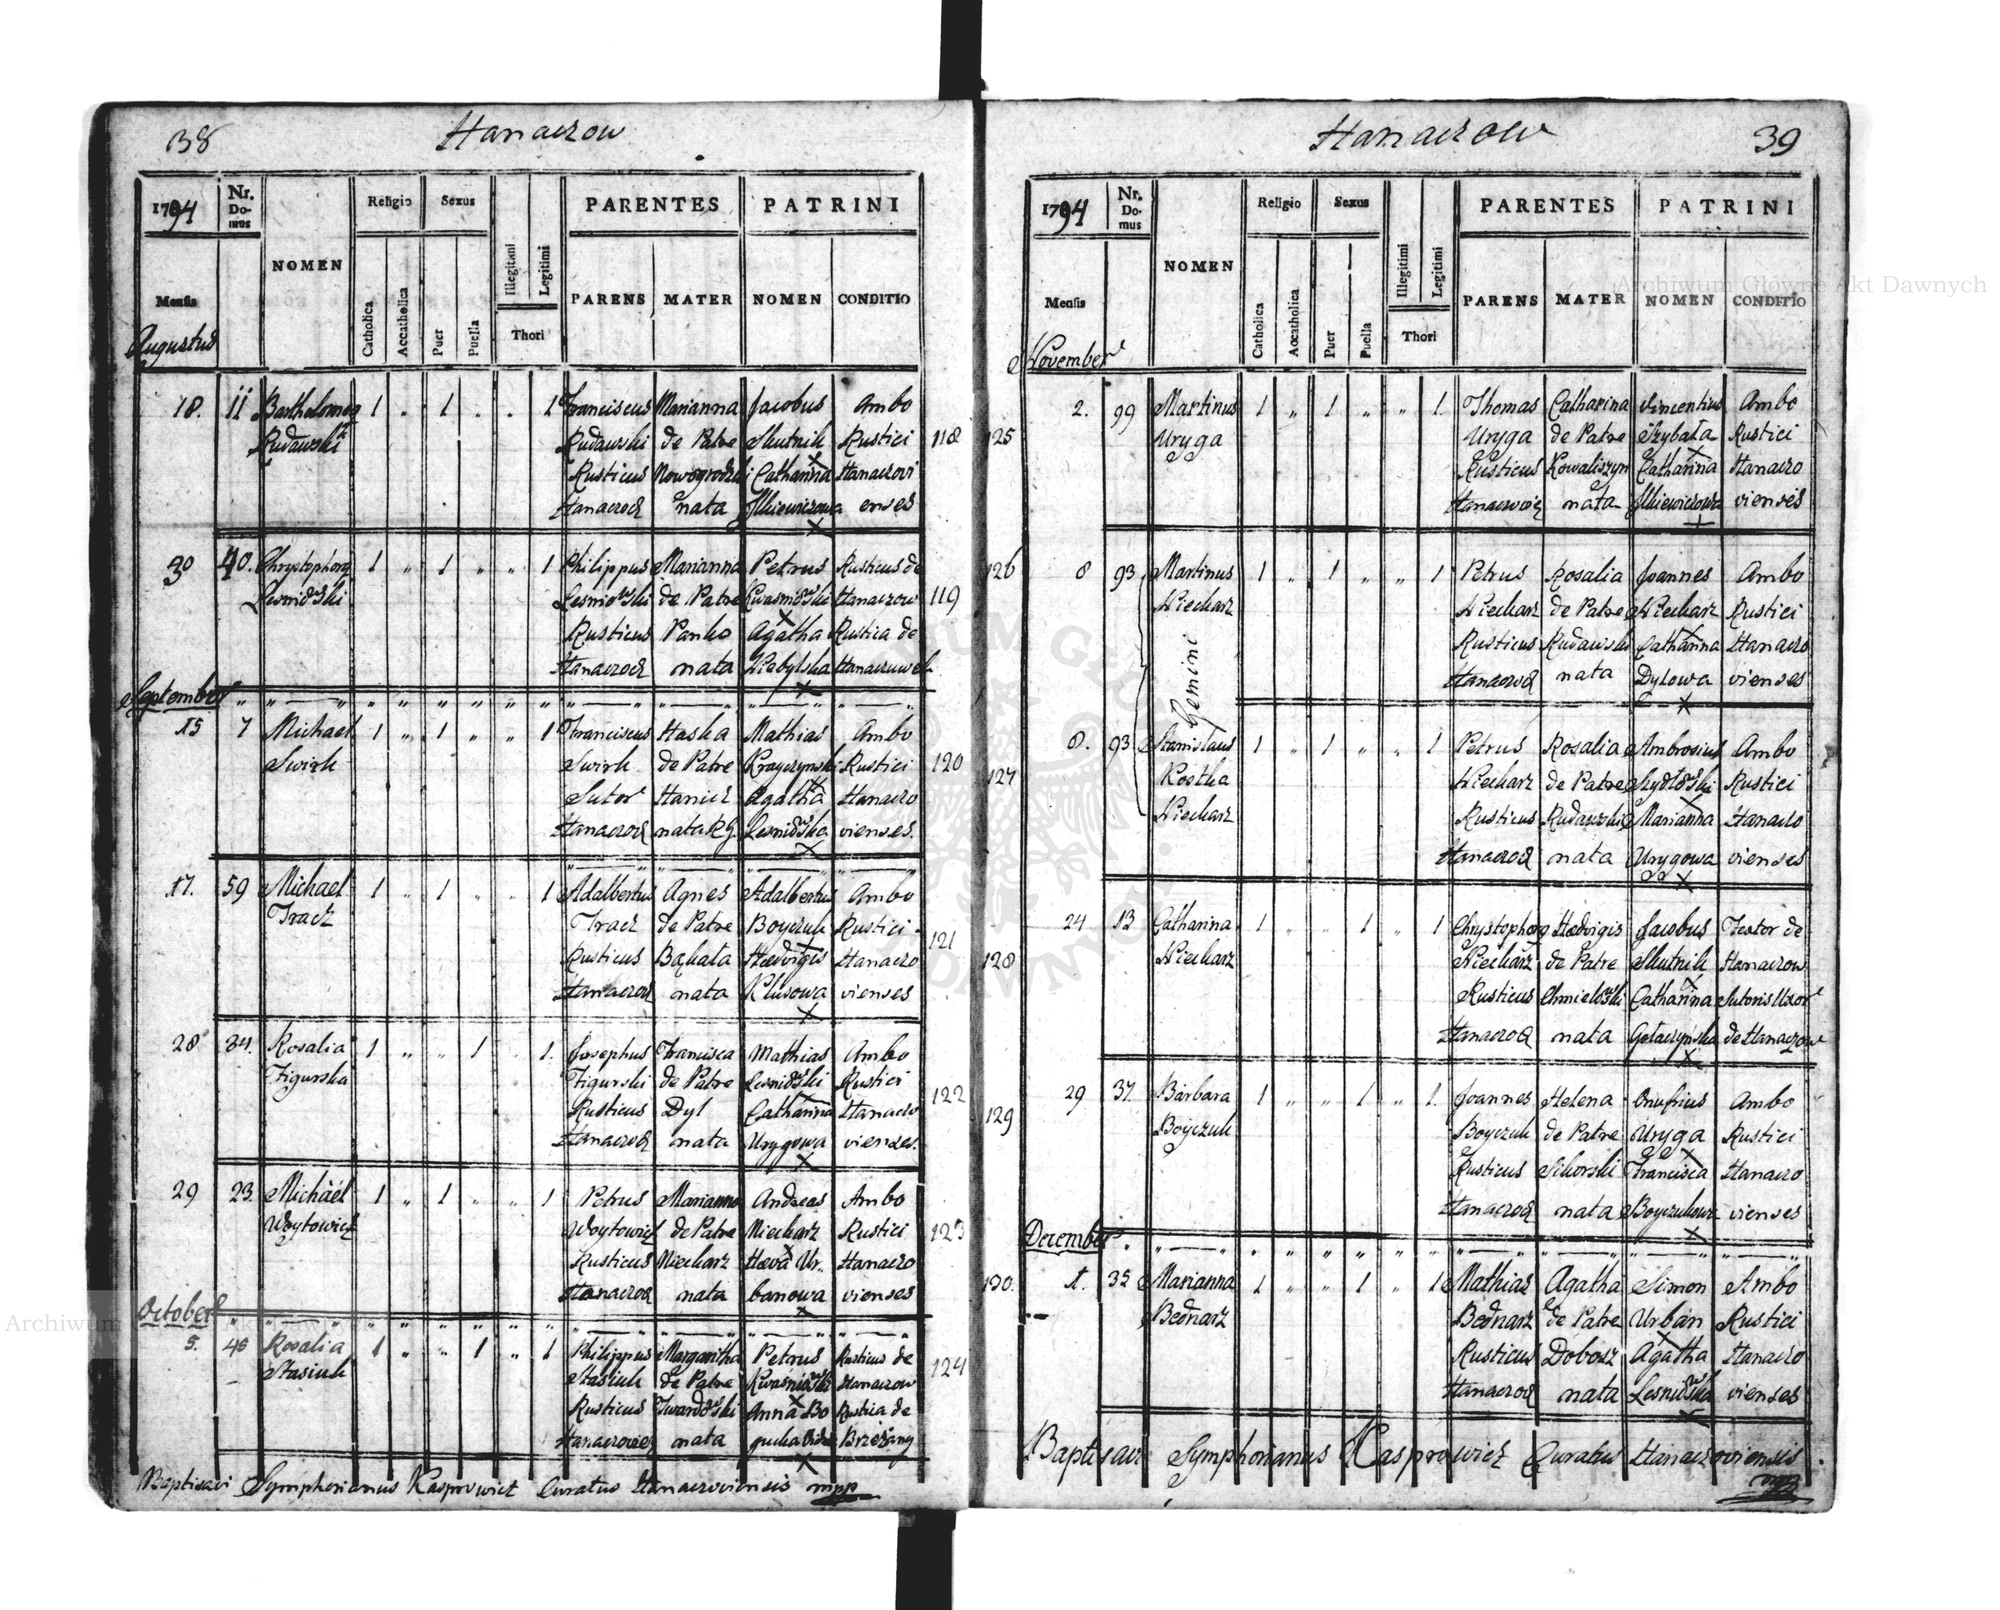 38 Hanaczow
1794 Nr. Domus NOMEN Religio Sexus Illegitimi Legitimi PARENTES PATRINI
Mensis Catholica Accatholica Puer Puella Thori PARENS MATER NOMEN CONDITIO
Augustus
18. 11 Bartholomeg 1 „ 1 „ „ 1 Franciscus Marianna Jacobus Ambo
Rudawski Rudawski de Patre Skutnik Rustici 118
Rusticus Nowogrodzki Catharina Hanaczovi
Hanaczov nata Ilkiewiczowa enses
30 40. Chrystophorg 1 „ 1 „ „ 1 Philippus Marianna Petrus Rusticus de
Lesniowski Lesniowski de Patre Kwasniowski Hanaczow 119
Rusticus Panko Agatha Rustica de
Hanaczov nata Hanaczuwek
September
15 7 Michael 1 „ 1 „ „ 1 Franciscus Haska Mathias Ambo
Swirk Swirk de Patre Krayczynski Rustici 120
Sutor Hanicz Agatha Hanaczo
Hanaczov nata R.G. Lesniowska vienses.
17. 59 Michael 1 „ 1 „ „ 1 Adalbertus Agnes Adalbertus Ambo
Tracz Tracz de Patre Boyczuk Rustici 121
Rusticus Bakata Hedvigis Hanaczo
Hanaczov nata Klusowa vienses
28 34. Rosalia 1 „ „ 1 „ 1. Josephus Francisca Mathias Ambo
Figurska Figurski de Patre Lesniowski Rustici
Rusticus Dyl Catharina Hanaczo 122
Hanaczov nata Urygowa vienses.
29 23. Michael 1 „ 1 „ „ 1 Petrus Marianna Andreas Ambo
Woytowicz Woytowicz de Patre Nieckarz Rustici 123
Rusticus Nieckarz Haeva Ur„ Hanaczo
Hanaczov nata banowa vienses
October
5. 45 Rosalia 1 „ „ 1 „ 1 Philippus Margaritha Petrus Rusticus de
Stasiuk Stasiuk de Patre Kwasniowski Hanaczow 124
Rusticus Twardowski Anna Bo Rustica de
Hanaczowien nata Brzezany
Baptisavi Symphorianus Kasprowicz Curatus Hanaczoviensis mpp
Hanaczow 39
1794 Nr. Domus NOMEN Religio Sexus Illegitimi Legitimi PARENTES PATRINI
Mensis Catholica Accatholica Puer Puella Thori PARENS MATER NOMEN CONDITIO
November
2. 99 Martinus 1 „ 1 „ „ 1. Thomas Catharina Vincentius Ambo
125 Uryga Uryga de Patre Szybata Rustici
Rusticus Kowaliszyn Catharina Hanaczo
Hanaczovien nata Ilkiewiczowa vienses
126 8 93 Martinus 1 „ 1 „ „ 1 Petrus Rosalia Joannes Ambo
Nieckarz Nieckarz de Patre Nieckarz Rustici
Gemini Rusticus Rudawski Catharina Hanaczo
Hanaczov nata Dylowa vienses
8. 93 Stanislaus 1 „ 1 „ „ 1 Petrus Rosalia Ambrosius Ambo
127 Kostka Nieckarz de Patre Szydlowski Rustici
Nieckarz Rusticus Rudawski Marianna Hanaczo
Hanaczov nata Urygowa vienses
24 13 Catharina 1 „ „ 1 „ 1 Chrystophorg Hedvigis Jacobus Textor de
128 Nieckarz Nieckarz de Patre Skutnik Hanaczow
Rusticus Chmielowski Catharina Sutoris Uxor
Hanaczov nata Gołaczynska de Hanaczow
29 37. Barbara 1 „ „ 1 „ 1. Joannes Helena Onufrius Ambo
129 Boyczuk Boyczuk de Patre Uryga Rustici
Rusticus Sikorski Francisca Hanaczo
Hanaczov nata Boyczukowa vienses
December
130. 1. 35 Marianna 1 „ „ 1 „ 1 Mathias Agatha Simon Ambo
Bednarz Bednarz de Patre Urban Rustici
Rusticus Dobosz Agatha Hanaczo
Hanaczov nata Lesniowska vienses
Baptisavi Symphorianus Kasprowicz Curatus Hanaczoviensis.
mpp
Archiwum Główne Akt Dawnych